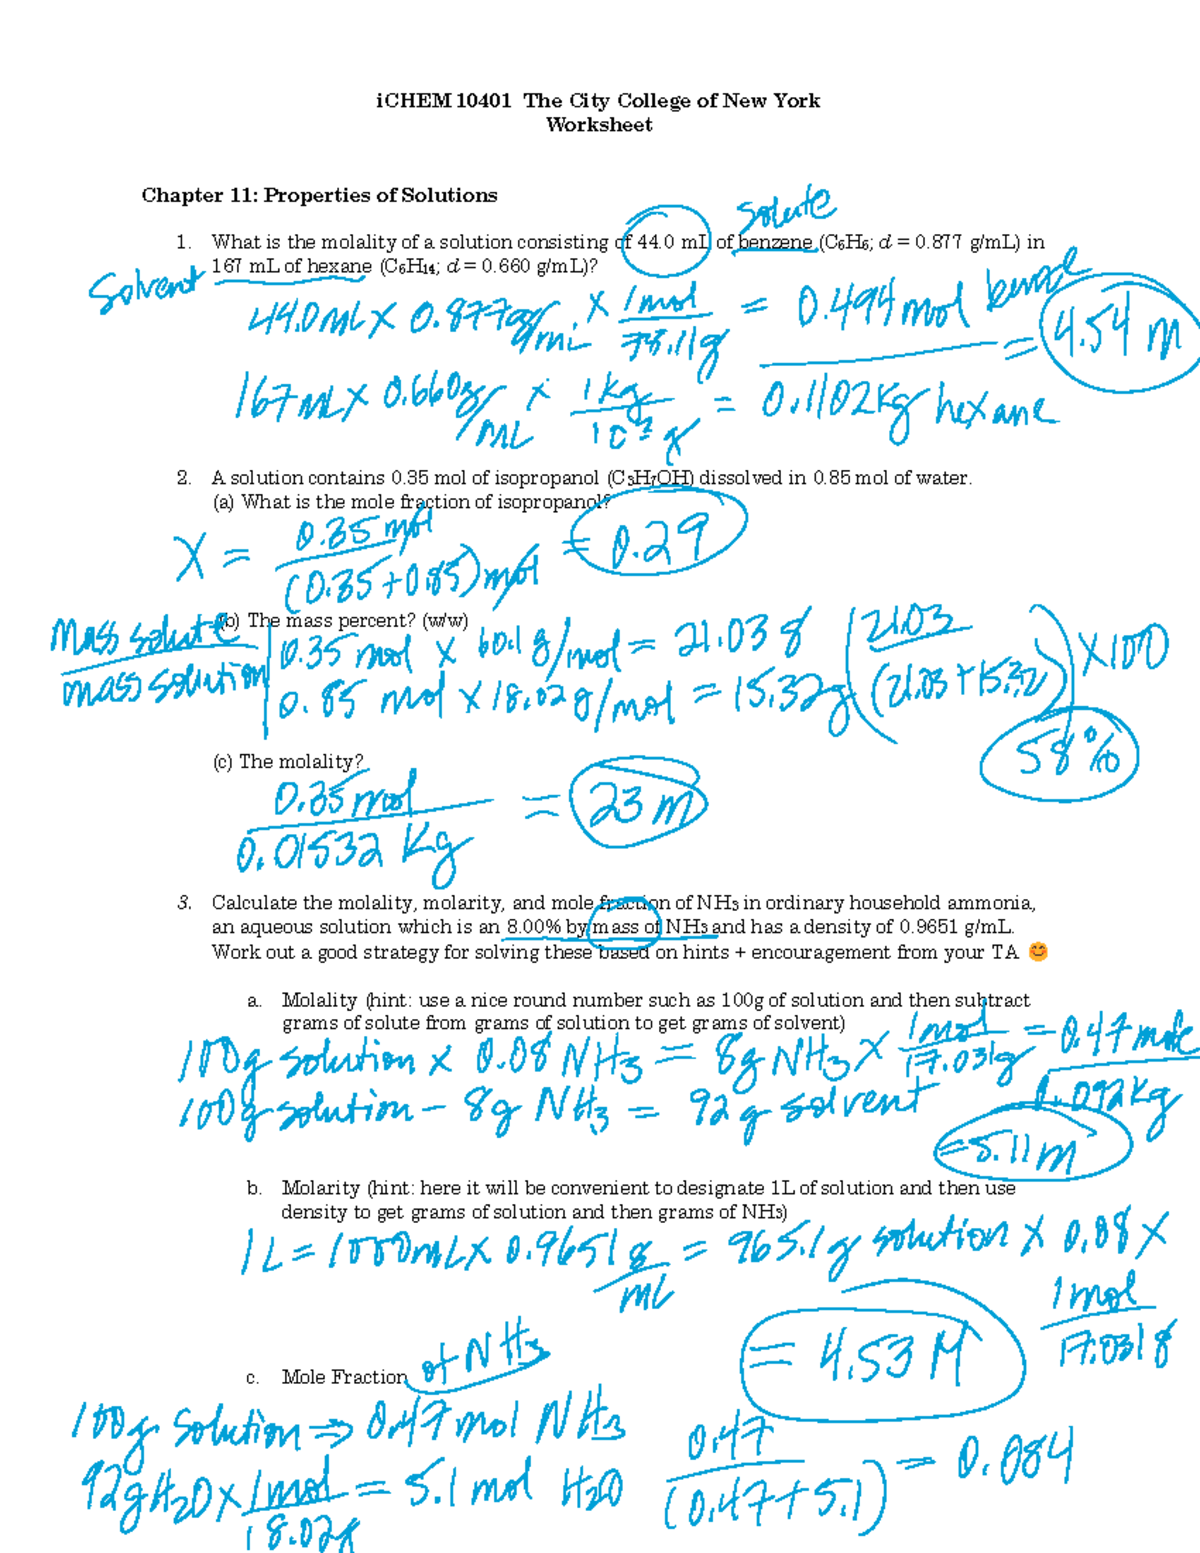 iCHEM 10401 The City College of New York
Worksheet
Chapter 11: Properties of Solutions
solute
1. What is the molality of a solution consisting of 44.0 mL of benzene (C₆H₆; d = 0.877 g/mL) in
167 mL of hexane (C₆H₁₄; d = 0.660 g/mL)?
Solvent
44.0mL x 0.877g/mL x 1mol/78.11g = 0.494 mol
167mL x 0.660g/mL x 1kg/10³g = 0.1102Kg hexane
= 4.54 m
2. A solution contains 0.35 mol of isopropanol (C₃H₇OH) dissolved in 0.85 mol of water.
(a) What is the mole fraction of isopropanol?
X = 0.35 mol/(0.35+0.85)mol = 0.29
(b) The mass percent? (w/w)
mass solute/mass solution
0.35 mol x 60.1 g/mol = 21.03 g
0.85 mol x 18.02g/mol = 15.32g
(21.03/(21.03+15.32)) x100
58%
(c) The molality?
0.35 mol/0.01532 Kg = 23 m
3. Calculate the molality, molarity, and mole fraction of NH₃ in ordinary household ammonia,
an aqueous solution which is an 8.00% by mass of NH₃ and has a density of 0.9651 g/mL.
Work out a good strategy for solving these based on hints + encouragement from your TA 😊
a. Molality (hint: use a nice round number such as 100g of solution and then subtract
grams of solute from grams of solution to get grams of solvent)
100g solution x 0.08 NH3 = 8g NH3 x 1mol/17.031g = 0.47 mole
100g solution - 8g NH3 = 92 g solvent
0.092Kg
= 5.11 m
b. Molarity (hint: here it will be convenient to designate 1L of solution and then use
density to get grams of solution and then grams of NH₃)
1 L = 1000mL x 0.9651 g/mL = 965.1g solution x 0.08 x
1mol/17.031g
= 4.53 M
c. Mole Fraction of NH3
100g solution ⇒ 0.47 mol NH3
92g H2O x 1mol/18.02g = 5.1 mol H2O
0.47/(0.47+5.1) = 0.084